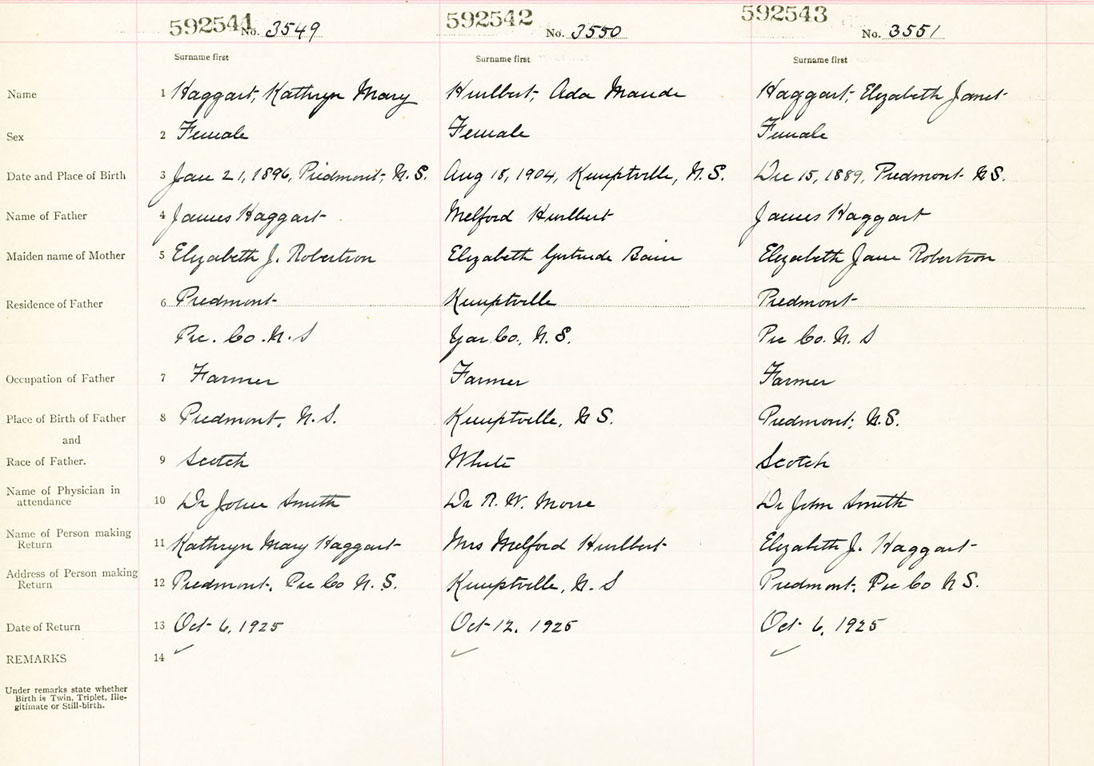 592541 592542 592543
No. 3549 No. 3550 No. 3551
Surname first Surname first Surname first
Name 1 Haggart, Kathryn Mary Hurlbert, Ada Maude Haggart, Elizabeth Janet
Sex 2 Female Female Female
Date and Place of Birth 3 Jan 21, 1896, Piedmont, N.S. Aug 18, 1904, Kemptville, N.S. Dec 15, 1889, Piedmont N.S.
Name of Father 4 James Haggart Melford Hurlbert James Haggart
Maiden name of Mother 5 Elizabeth J. Robertson Elizabeth Gertrude Bain Elizabeth Jane Robertson
Residence of Father 6 Piedmont Kemptville Piedmont
Pic. Co. N.S Yar Co, N.S. Pic Co. N.S
Occupation of Father 7 Farmer Farmer Farmer
Place of Birth of Father 8 Piedmont, N.S. Kemptville, N S. Piedmont, N.S.
and
Race of Father. 9 Scotch White Scotch
Name of Physician in
attendance 10 Dr John Smith Dr R. W. Morse Dr John Smith
Name of Person making
Return 11 Kathryn Mary Haggart Mrs Melford Hurlbert Elizabeth J. Haggart
Address of Person making
Return 12 Piedmont, Pic Co N.S. Kemptville, N.S Piedmont, Pic Co N S.
Date of Return 13 Oct 6, 1925 Oct 12, 1925 Oct 6, 1925
REMARKS 14
Under remarks state whether
Birth is Twin, Triplet, Ille-
gitimate or Still-birth.